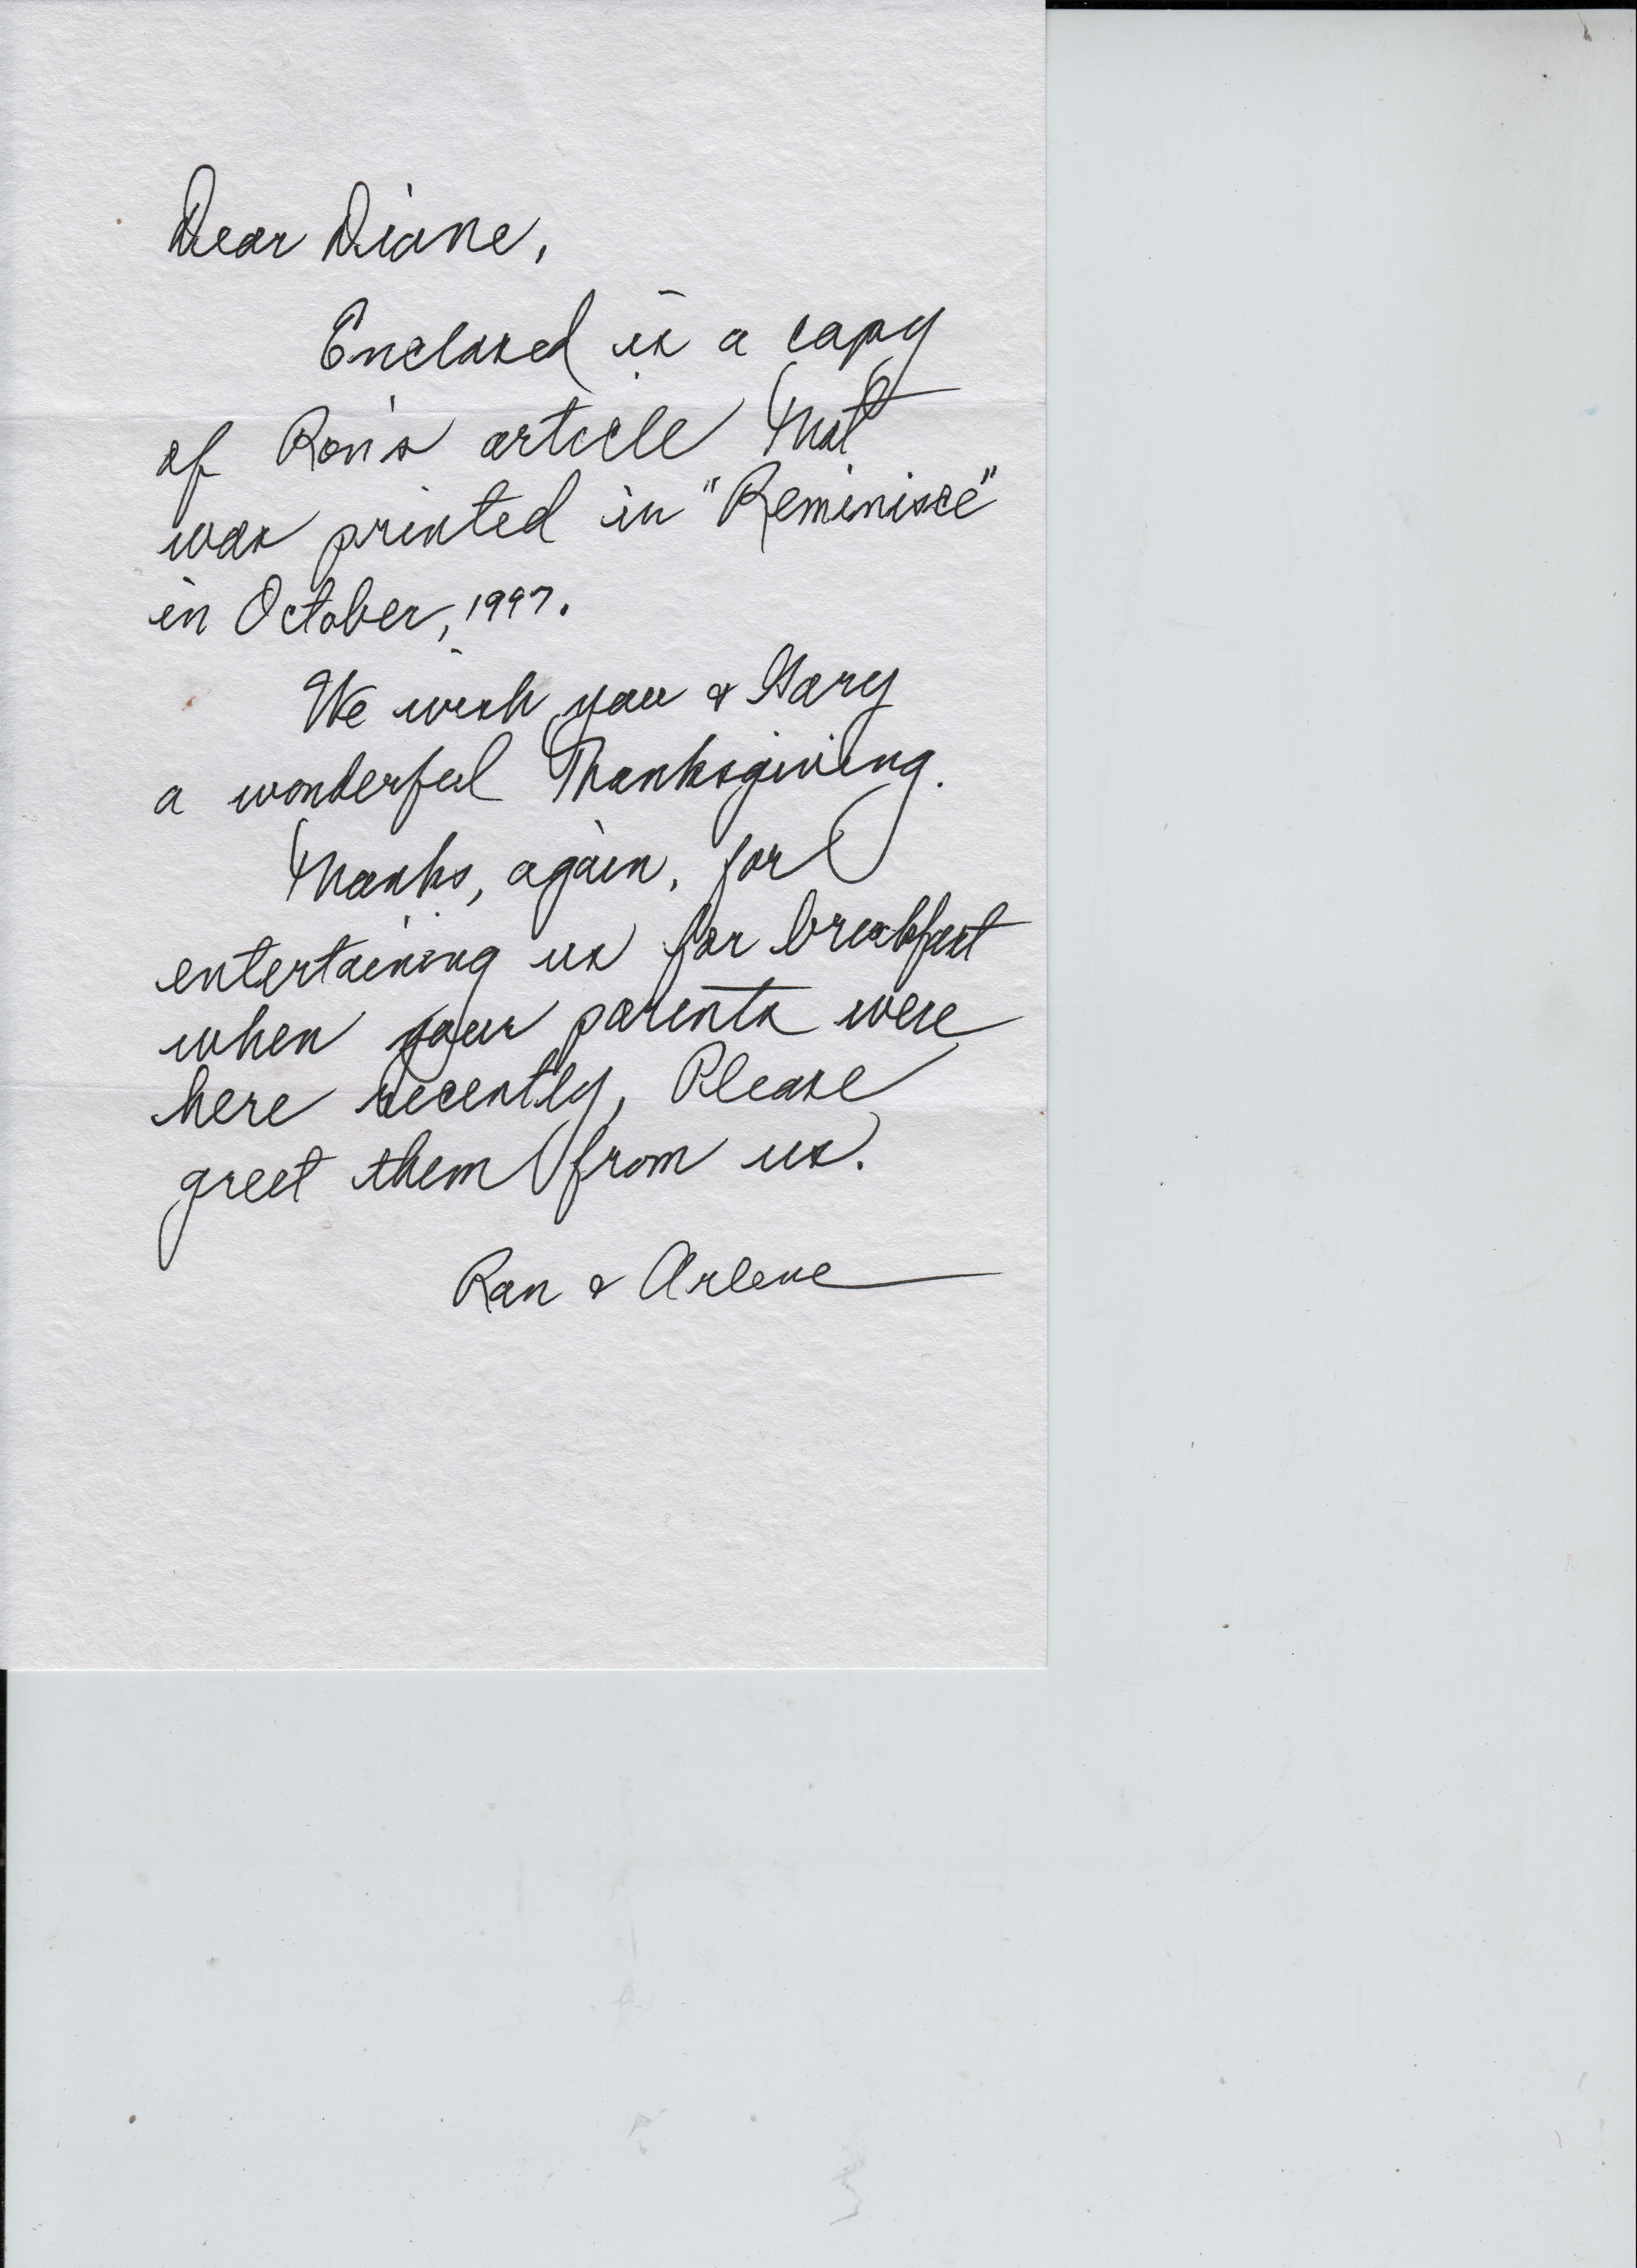 Dear Diane,
Enclosed is a copy
of Ron's article that
was printed in "Reminisce"
in October, 1997.
We wish you & Gary
a wonderful Thanksgiving.
Thanks, again, for
entertaining us for breakfast
when your parents were
here recently, Please
greet them from us.
Ron & Arlene